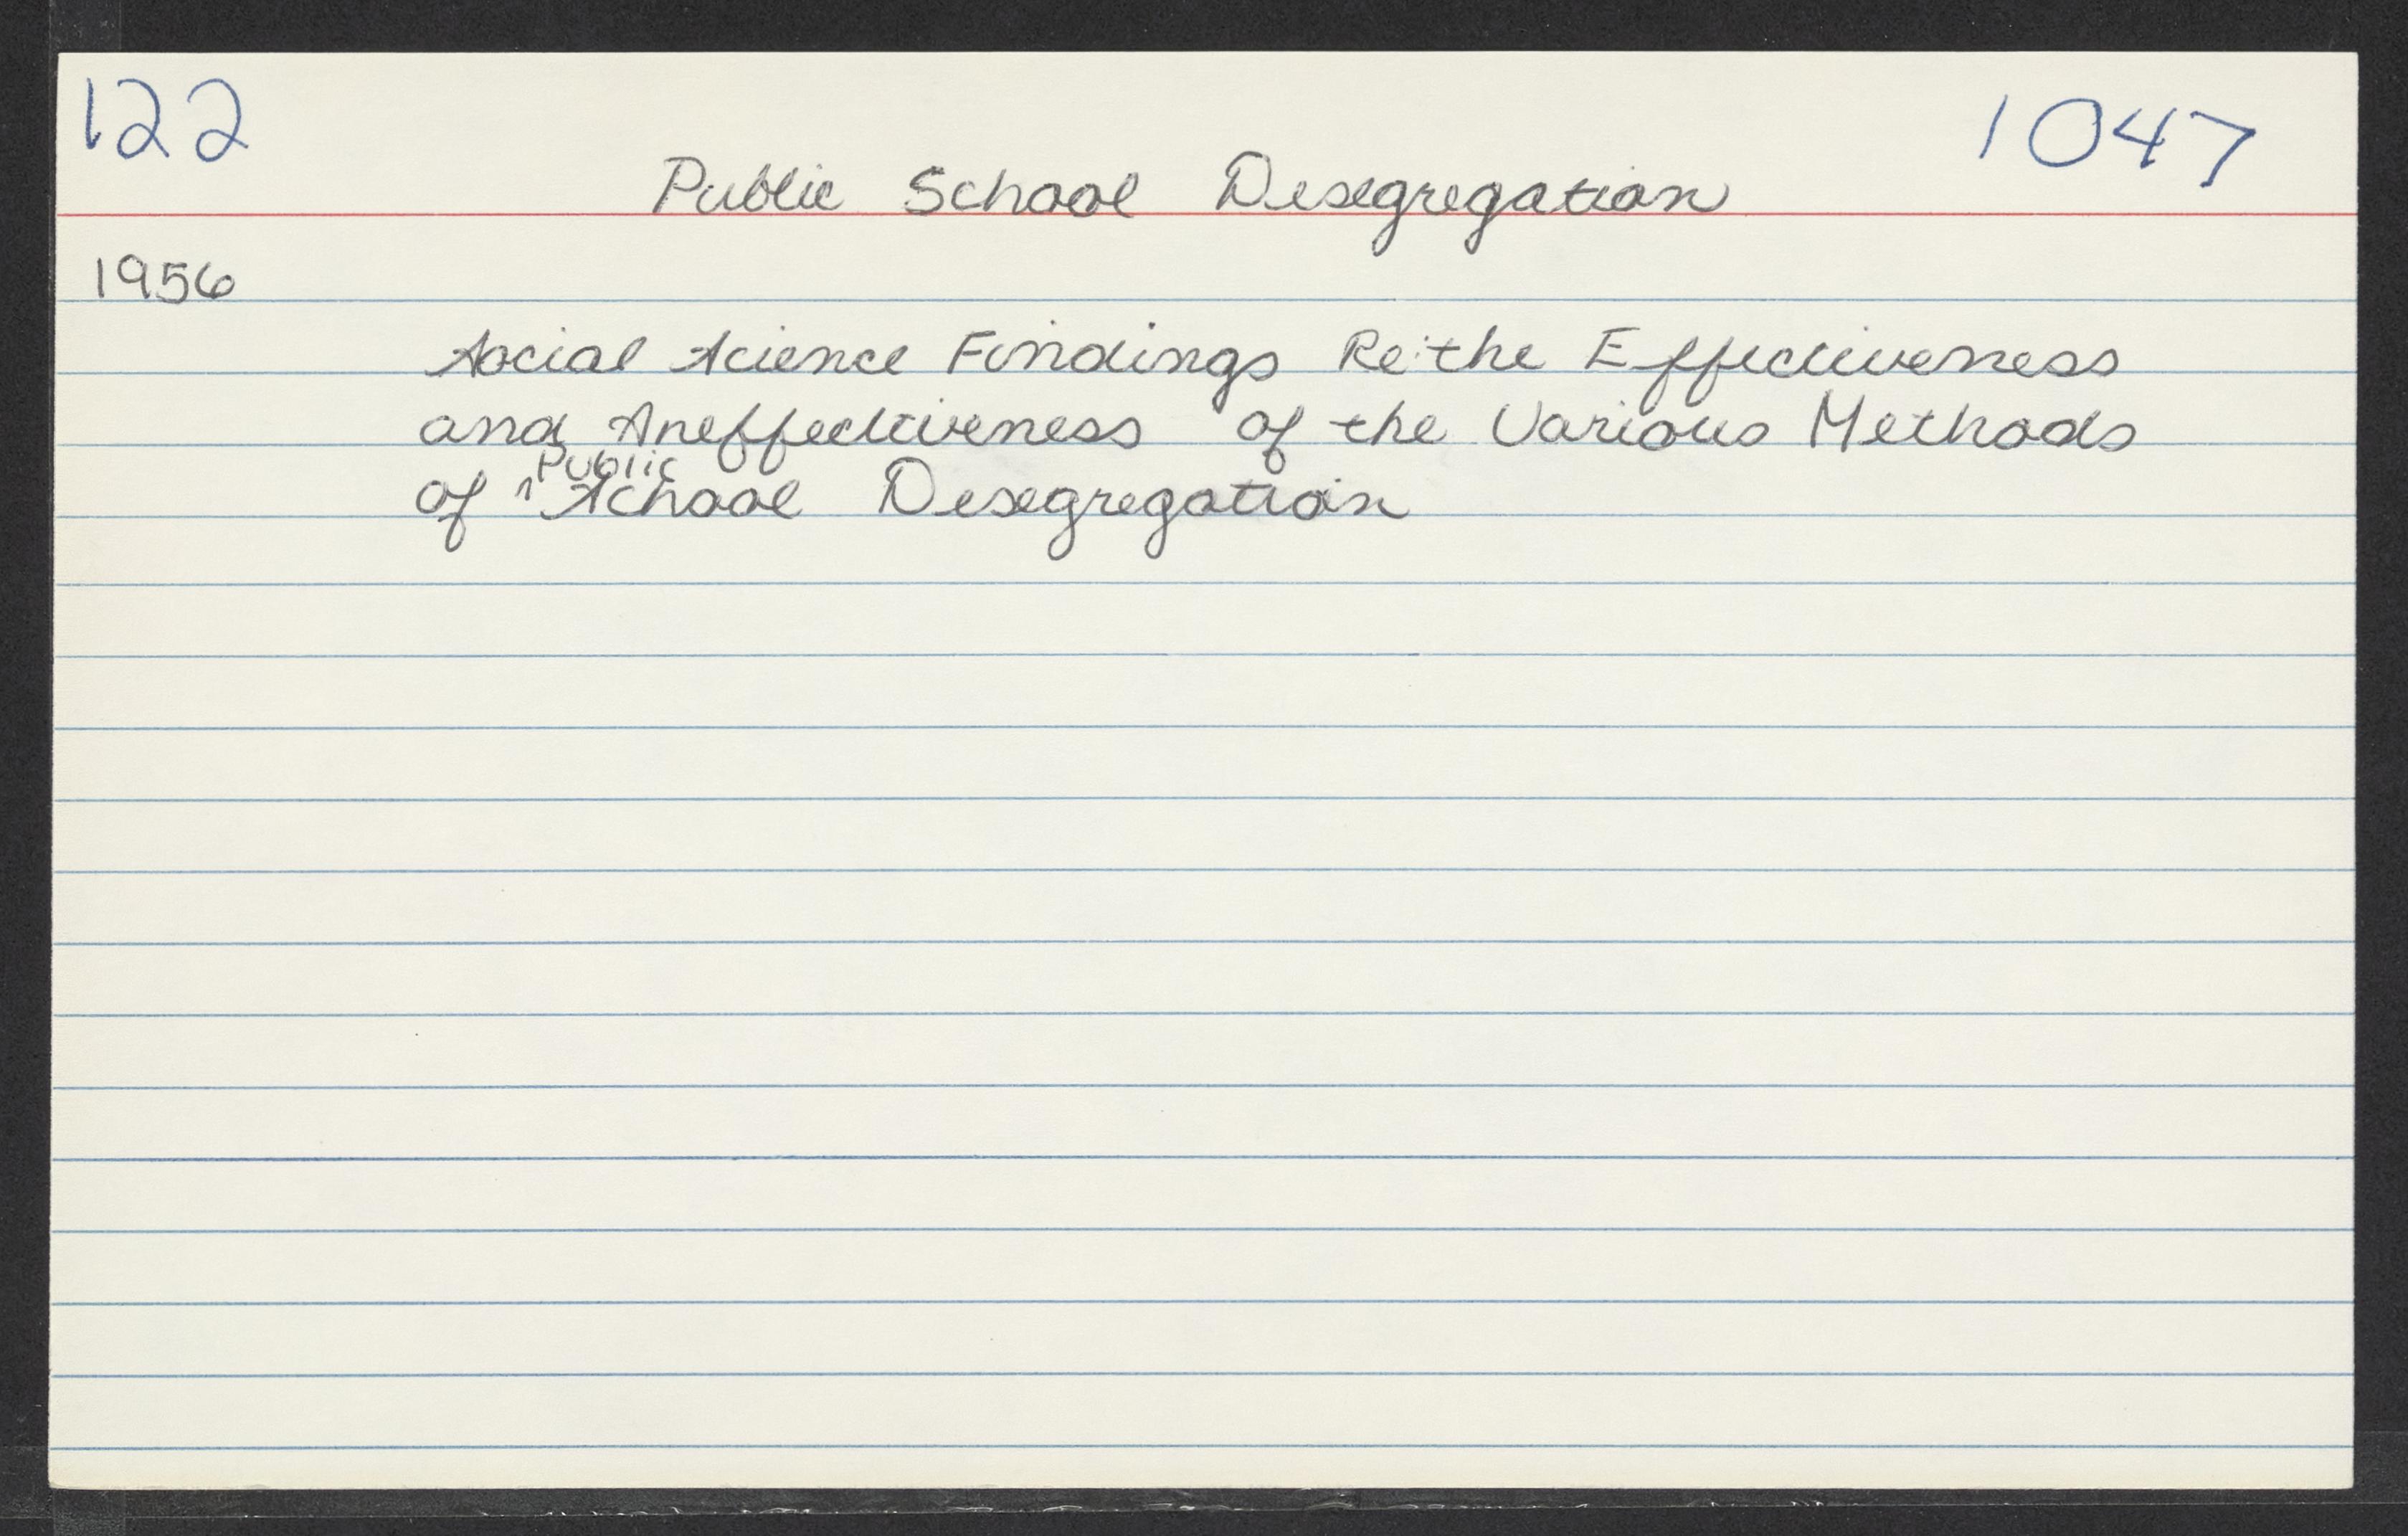 122
1047
Public School Desegregation
1956
Social Science Findings Re: the Effectiveness
and Ineffectiveness of the Various Methods
of ^Public School Desegregation